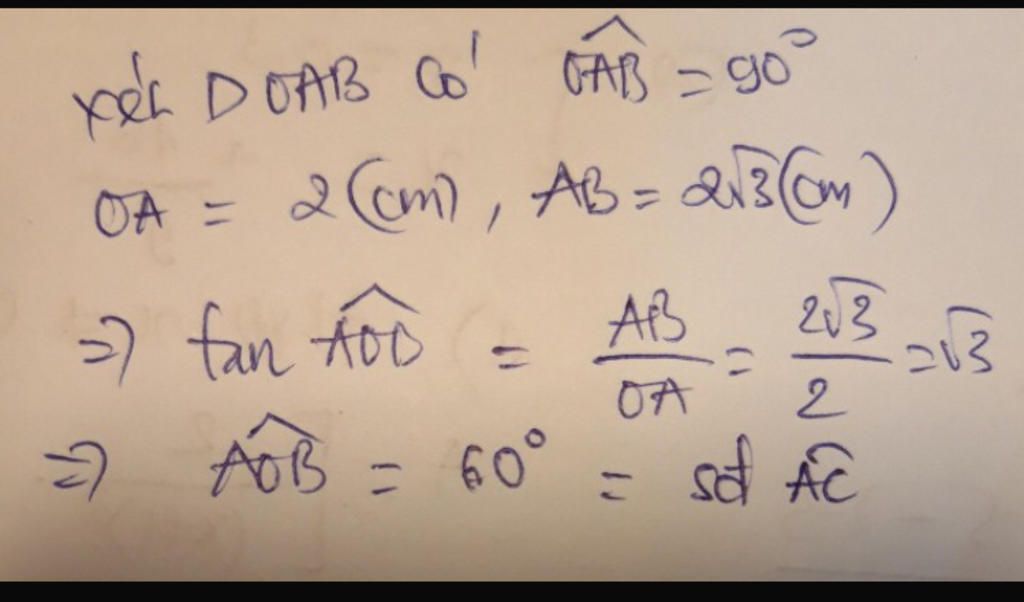 xét D OAB Có \widehat{OAB} = 90°
OA = 2 (cm), AB = 2√3 (cm)
=> tan \widehat{AOB} = \frac{AB}{OA} = \frac{2√3}{2} = √3
=> \widehat{AOB} = 60° = sđ \overset{\frown}{AC}